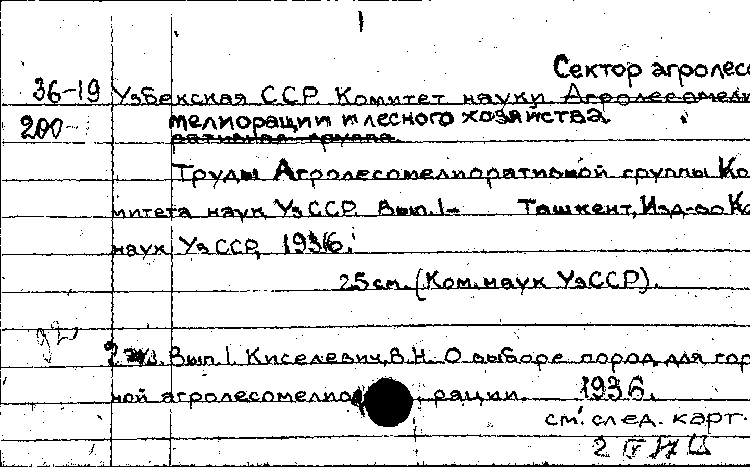 1
Сектор агролесо
36-19 Узбекская ССР. Комитет науки. Агролесомели
200- мелиорации и лесного хозяйства
ративная группа.
Труды Агролесомелиоративной группы Ко
митета наук УзССР. Вып. 1- Ташкент, Изд-во Ко
наук УзССР, 1936.
25 см. (Ком. наук УзССР).
Вып. 1. Киселевич, В.Н. О выборе пород для гор
ной агролесомелиорации. 1936.
см. след. карт.